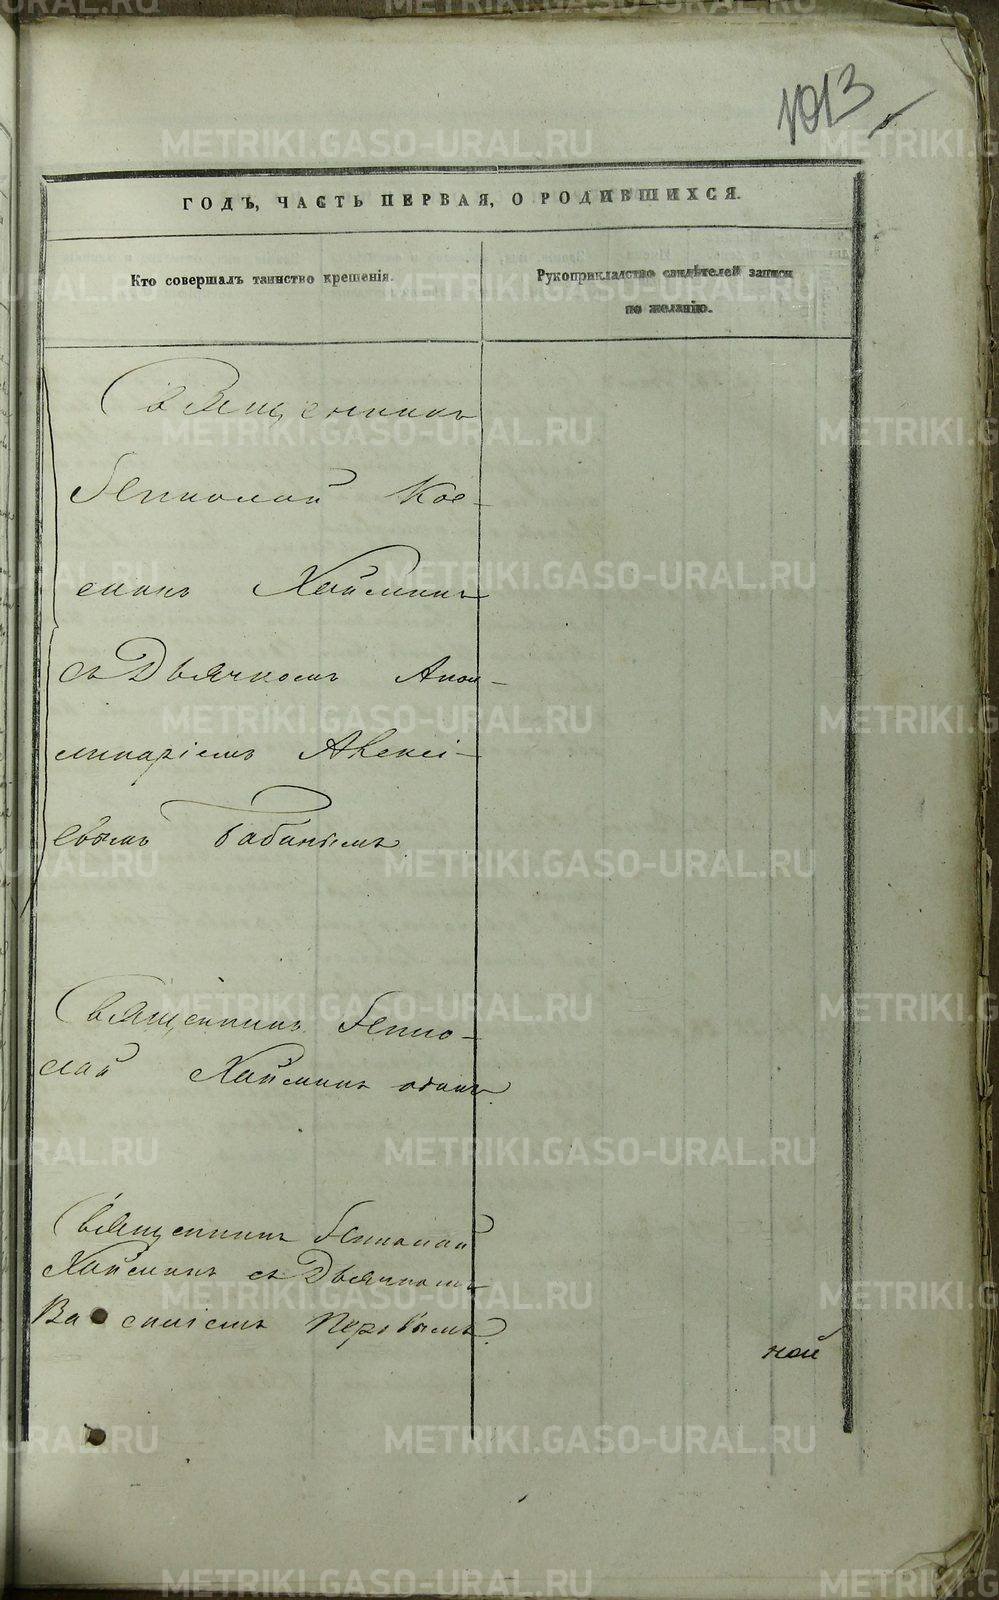 1013
ГОДЪ, ЧАСТЬ ПЕРВАЯ, О РОДИВШИХСЯ.
Кто совершалъ таинство крещенія.
Рукоприкладство свидѣтелей записи
по желанію.
Священникъ
Николай Кос-
минъ Хайминъ
съ Дьячкомъ Апол-
линаріемъ Алексі-
евымъ Бабинымъ
Священникъ Нико-
лай Хайминъ одинъ.
Священникъ Николай
Хайминъ съ Дьячкомъ
Василіемъ Первымъ.
ной
METRIKI.GASO-URAL.RU